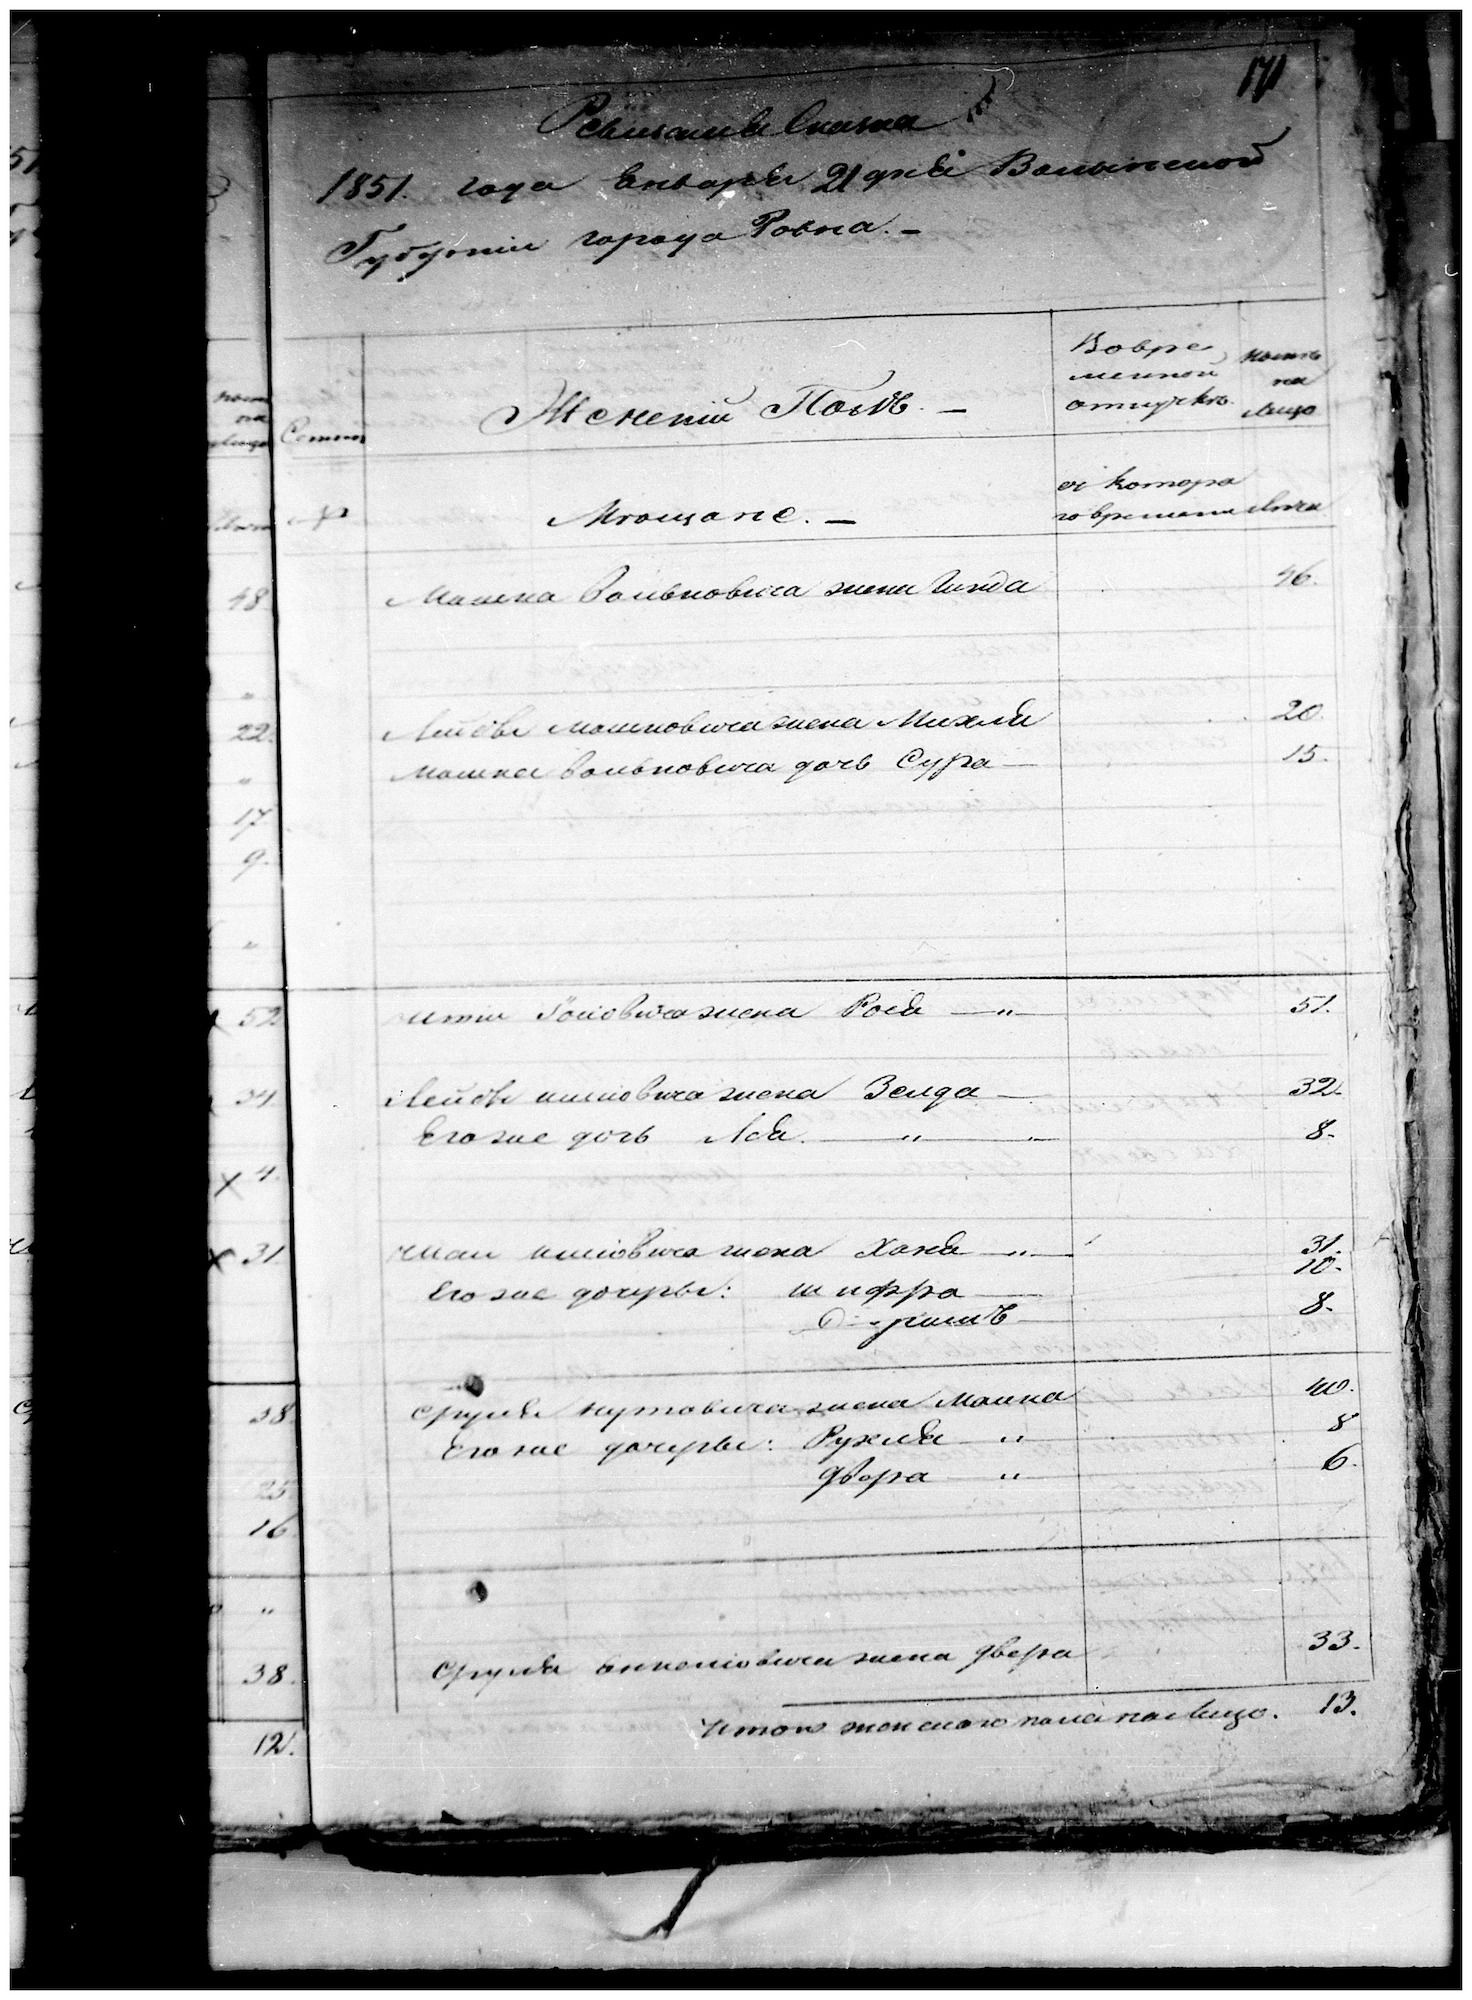 171
Ревизская Сказка
1851. года Генваря 21 дня Волынской
Губернии города Ровна. –
Семьи
Женский Полъ. –
Вовре
менной
отлучкъ.
ныне
на
лицо
№
Мещане. –
съ котора
го времени
Лета
48
Мошка Вольковича жена Гинда
46.
22.
Лейбы Мошковича жена Михля
20.
Мошка Вольковича дочь Сура
15.
17
9.
52
Иосиовича женаРойза
51.
34.
Лейбы Ициковича жена Зелда
32.
Его же дочь
8.
4.
31
жена Хана
31.
Его же дочеры: шифра
10.
8.
38.
Сруля Нутовича жена Малка
40.
Его же дочеры: Рухля
8
двера
6.
25
16
38.
Сруля жена двера
33.
12.
Итого женского пола на лицо. 13.